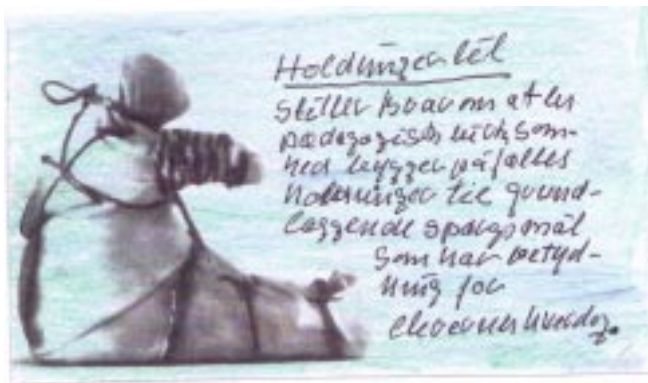 Holdninger til
stiller krav om at en
pædagogisk virksom-
hed bygger på fælles
holdninger til grund-
læggende spørgsmål
som har betyd-
ning for
elevernes hverdag.